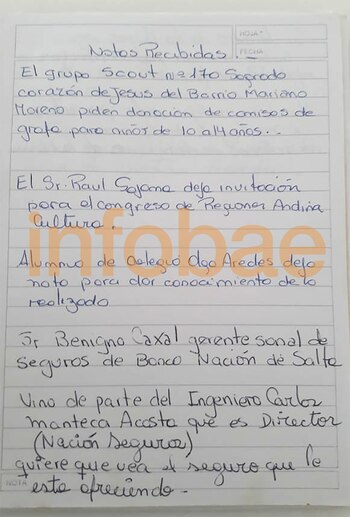 HOJA Nº
FECHA
Notas Recibidas.-
El grupo Scout nº 170 Sagrado
corazón de Jesus del Barrio Mariano
Moreno piden donación de camisas de
grafa para niños de 10 a 14 años..
El Sr. Raul Gajana deja invitación
para el congreso de Regiones Andina
Cultura.
infobae
Alumnno de Colegio Olga Aredes deja
nota para dar conocimiento de lo
realizado
Sr Benigno Caxal gerente sonal de
seguros de Banco Nación de Salta
Vino de parte del Ingeniero Carlos
manteca Acosta que es Director
(Nación Seguros)
quiere que vea el seguro que le
esta ofreciendo-
NOTA